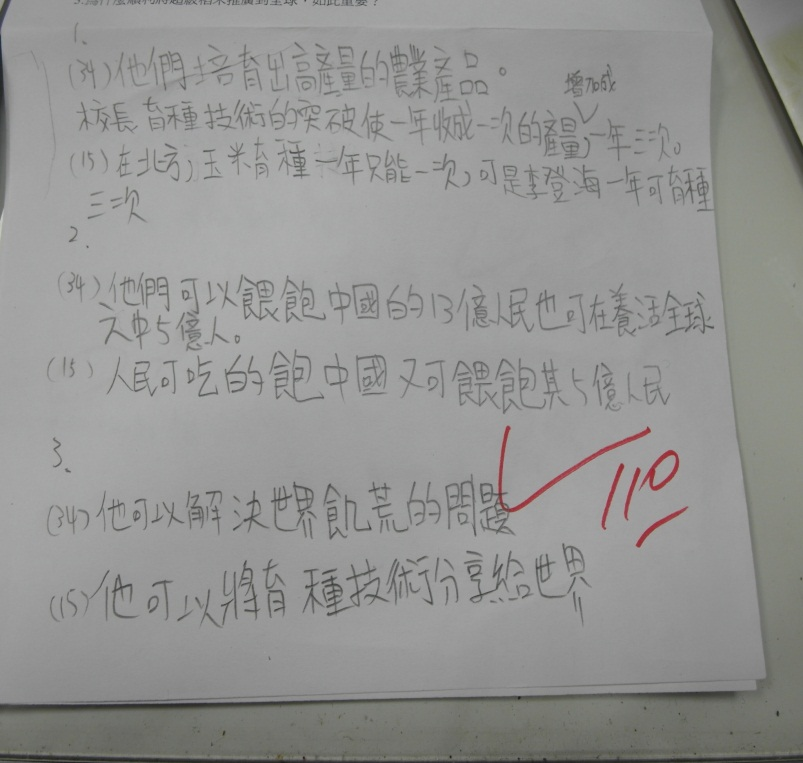 3.為什麼順利將超級稻米推廣到全球，如此重要？
1、
(34)他們培育出高產量的農業產品。
增加成
校長育種技術的突破使一年收成一次的產量，一年三次。
(15)在北方，玉米育種一年只能一次，可是李登海一年可育種
三次
2、
(34)他們可以餵飽中國的13億人民也可在養活全球
六中5億人。
(15)人民可吃的飽中國又可餵飽其5億人民
3、
(34)他可以解決世界飢荒的問題
110
(15)他可以將育種技術分享給世界